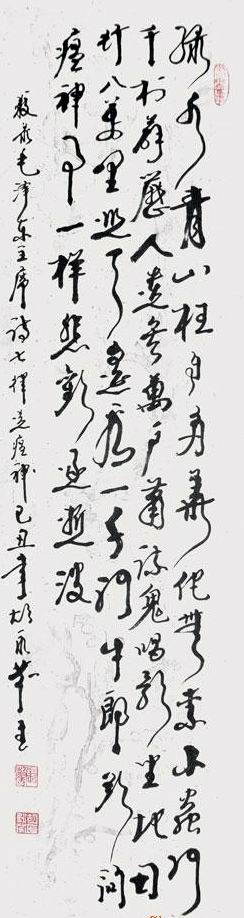 绿水青山枉自多華佗無奈小蟲何
千村薜荔人遗矢萬户蕭疏鬼唱歌坐地日
行八萬里巡天遥看一千河牛郎欲问
瘟神事一样悲歡逐逝波
毛泽东主席诗七律送瘟神己丑年